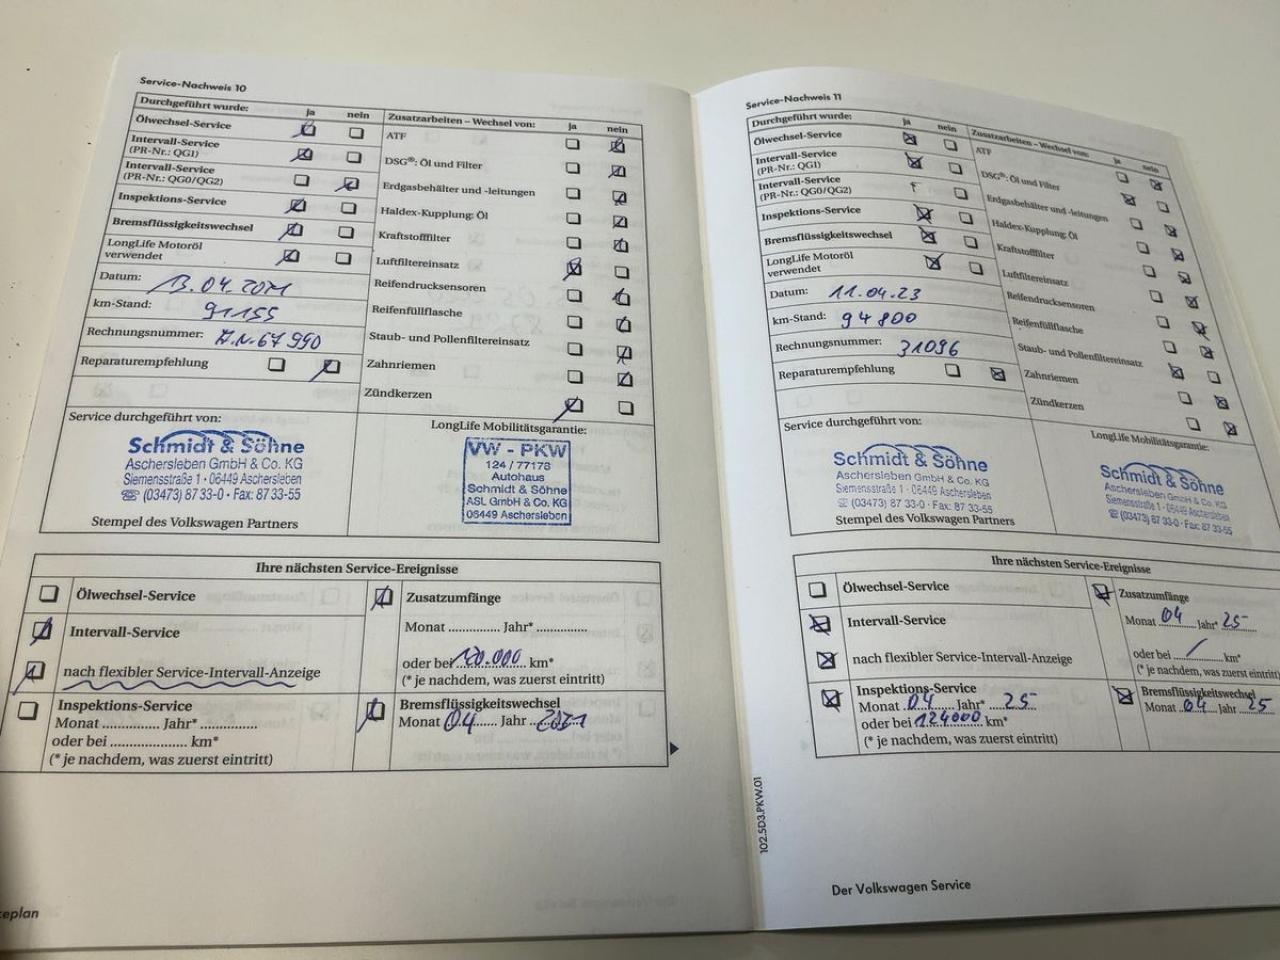 Service-Nachweis 10
Durchgeführt wurde: ja nein
Ölwechsel-Service
Intervall-Service
(PR-Nr.: QG1)
Intervall-Service
(PR-Nr.: QG0/QG2)
Inspektions-Service
Bremsflüssigkeitswechsel
LongLife Motoröl
verwendet
Datum: 13.04.2021
km-Stand: 91155
Rechnungsnummer: A.N.67990
Reparaturempfehlung
Zusatzarbeiten – Wechsel von: ja nein
ATF
DSG®: Öl und Filter
Erdgasbehälter und -leitungen
Haldex-Kupplung: Öl
Kraftstofffilter
Luftfiltereinsatz
Reifendrucksensoren
Reifenfüllflasche
Staub- und Pollenfiltereinsatz
Zahnriemen
Zündkerzen
Service durchgeführt von:
Schmidt & Söhne
Aschersleben GmbH & Co. KG
Siemensstraße 1 · 06449 Aschersleben
☏ (03473) 87 33-0 · Fax: 87 33-55
Stempel des Volkswagen Partners
LongLife Mobilitätsgarantie:
VW - PKW
124 / 77178
Autohaus
Schmidt & Söhne
ASL GmbH & Co. KG
06449 Aschersleben
Ihre nächsten Service-Ereignisse
Ölwechsel-Service
Intervall-Service
nach flexibler Service-Intervall-Anzeige
Inspektions-Service
Monat .............. Jahr* ..............
oder bei .................... km*
(* je nachdem, was zuerst eintritt)
Zusatzumfänge
Monat .............. Jahr* ..............
oder bei 120.000 km*
(* je nachdem, was zuerst eintritt)
Bremsflüssigkeitswechsel
Monat 04 Jahr
eplan
Service-Nachweis 11
Durchgeführt wurde: ja nein
Ölwechsel-Service
Intervall-Service
(PR-Nr.: QG1)
Intervall-Service
(PR-Nr.: QG0/QG2)
Inspektions-Service
Bremsflüssigkeitswechsel
LongLife Motoröl
verwendet
Datum: 11.04.23
km-Stand: 94800
Rechnungsnummer: 31096
Reparaturempfehlung
Zusatzarbeiten – Wechsel von: ja nein
ATF
DSG®: Öl und Filter
Erdgasbehälter und -leitungen
Haldex-Kupplung: Öl
Kraftstofffilter
Luftfiltereinsatz
Reifendrucksensoren
Reifenfüllflasche
Staub- und Pollenfiltereinsatz
Zahnriemen
Zündkerzen
Service durchgeführt von:
Schmidt & Söhne
Aschersleben GmbH & Co. KG
Siemensstraße 1 · 06449 Aschersleben
☏ (03473) 87 33-0 · Fax: 87 33-55
Stempel des Volkswagen Partners
LongLife Mobilitätsgarantie:
Schmidt & Söhne
Aschersleben GmbH & Co. KG
Siemensstraße 1 · 06449 Aschersleben
☏ (03473) 87 33-0 · Fax: 87 33-55
Ihre nächsten Service-Ereignisse
Ölwechsel-Service
Intervall-Service
nach flexibler Service-Intervall-Anzeige
Inspektions-Service
Monat 04 Jahr* 25
oder bei 124000 km*
(* je nachdem, was zuerst eintritt)
Zusatzumfänge
Monat 04 Jahr* 25
oder bei / km*
(* je nachdem, was zuerst eintritt)
Bremsflüssigkeitswechsel
Monat 04 Jahr 25
102.5D3.PKW.01
Der Volkswagen Service